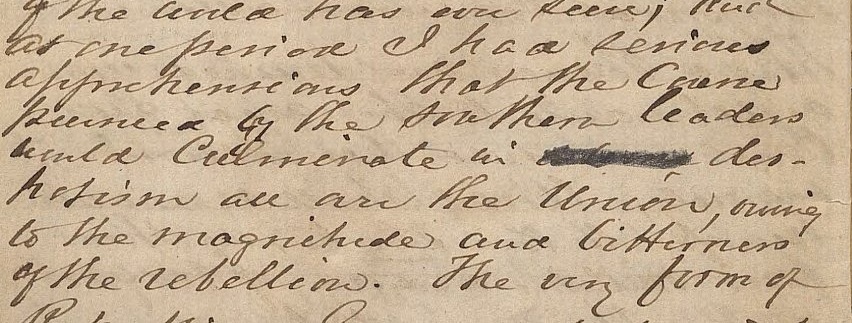 of the world has ever seen; and
at one period I had serious
apprehensions that the Course
pursued by the southern leaders
would Culminate in des-
potism all over the Union, owing
to the magnitude and bitterness
of the rebellion. The very form of